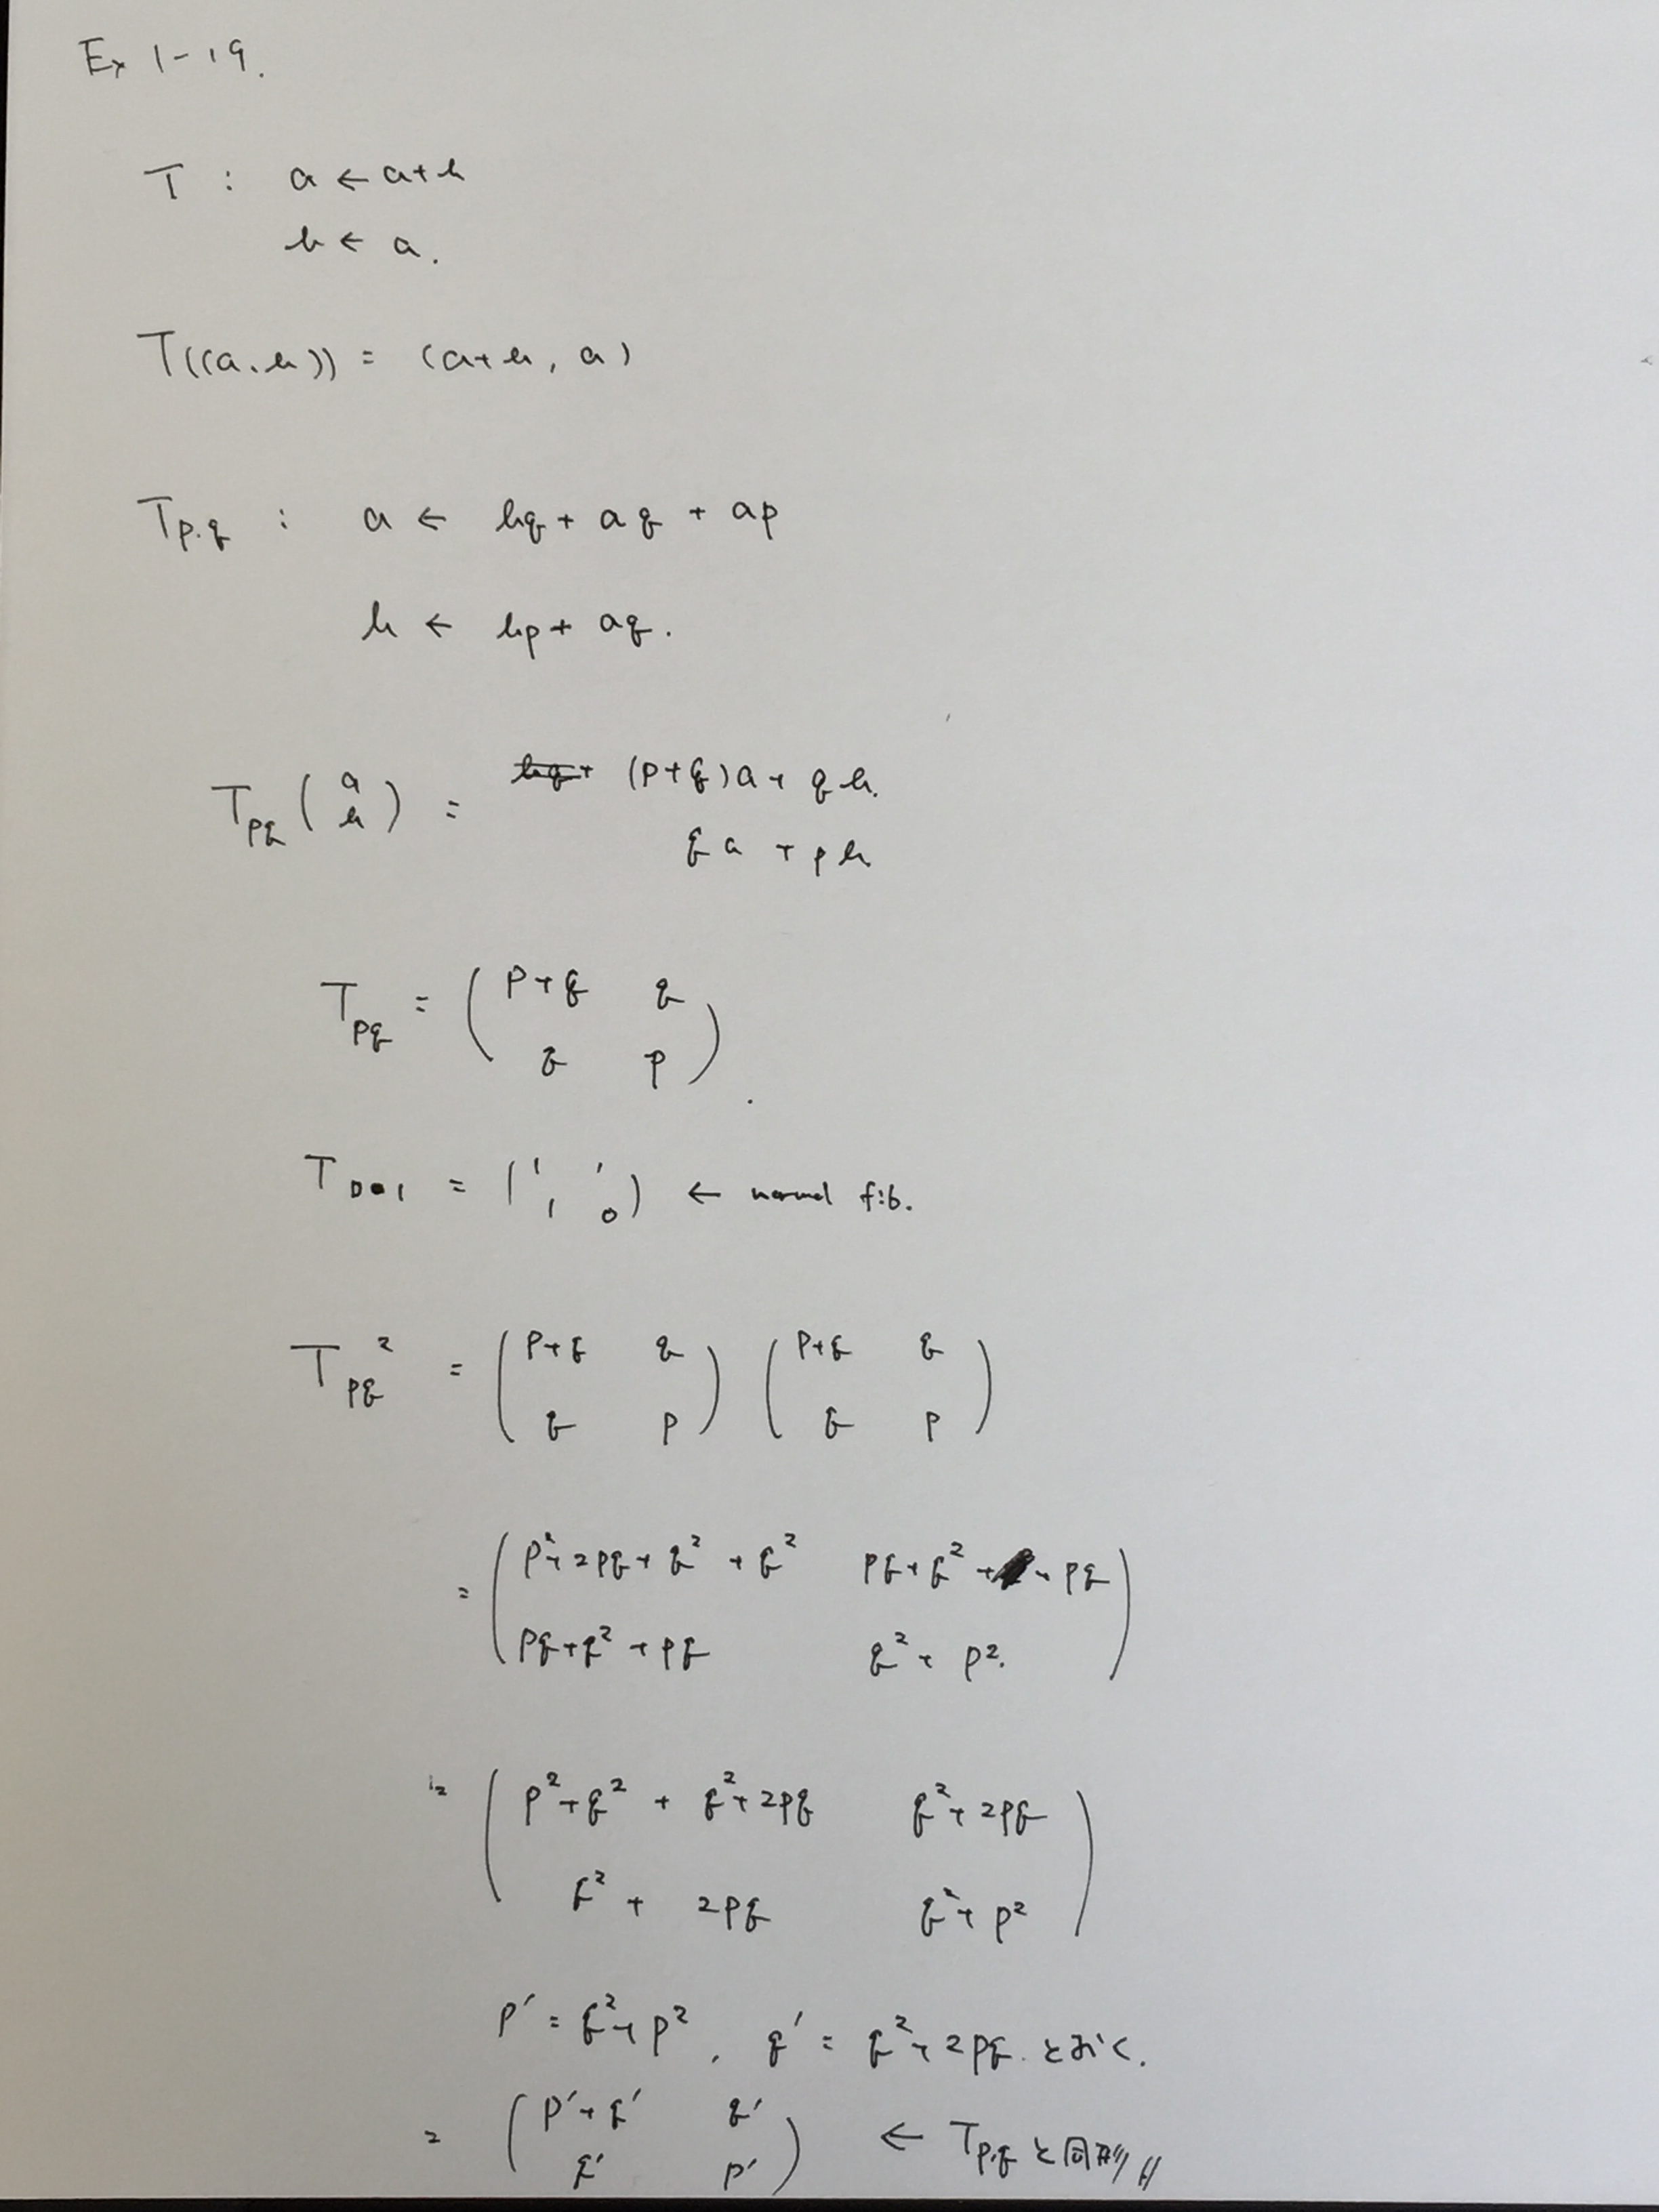 Ex 1-19.
T : a ← a+b
b ← a.
T((a.b)) = (a+b, a)
Tp.q : a ← bq + aq + ap
b ← bp + aq.
Tpq ( a b ) = (p+q)a + qb.
qa + pb
Tpq = ( p+q q
q p ) .
T 0 1 = ( 1 1 1 0 ) ← normal fib.
Tpq² = ( p+q q ) ( p+q q )
( q p ) ( q p )
= ( p²+2pq+q² + q² pq+q² + pq
pq+q² + pq q² + p². )
= ( p²+q² + q²+2pq q²+2pq
q² + 2pq q²+p² )
p' = q²+p² , q' = q²+2pq. とおく.
= ( p'+q' q'
q' p' ) ← Tp.q と同形 //